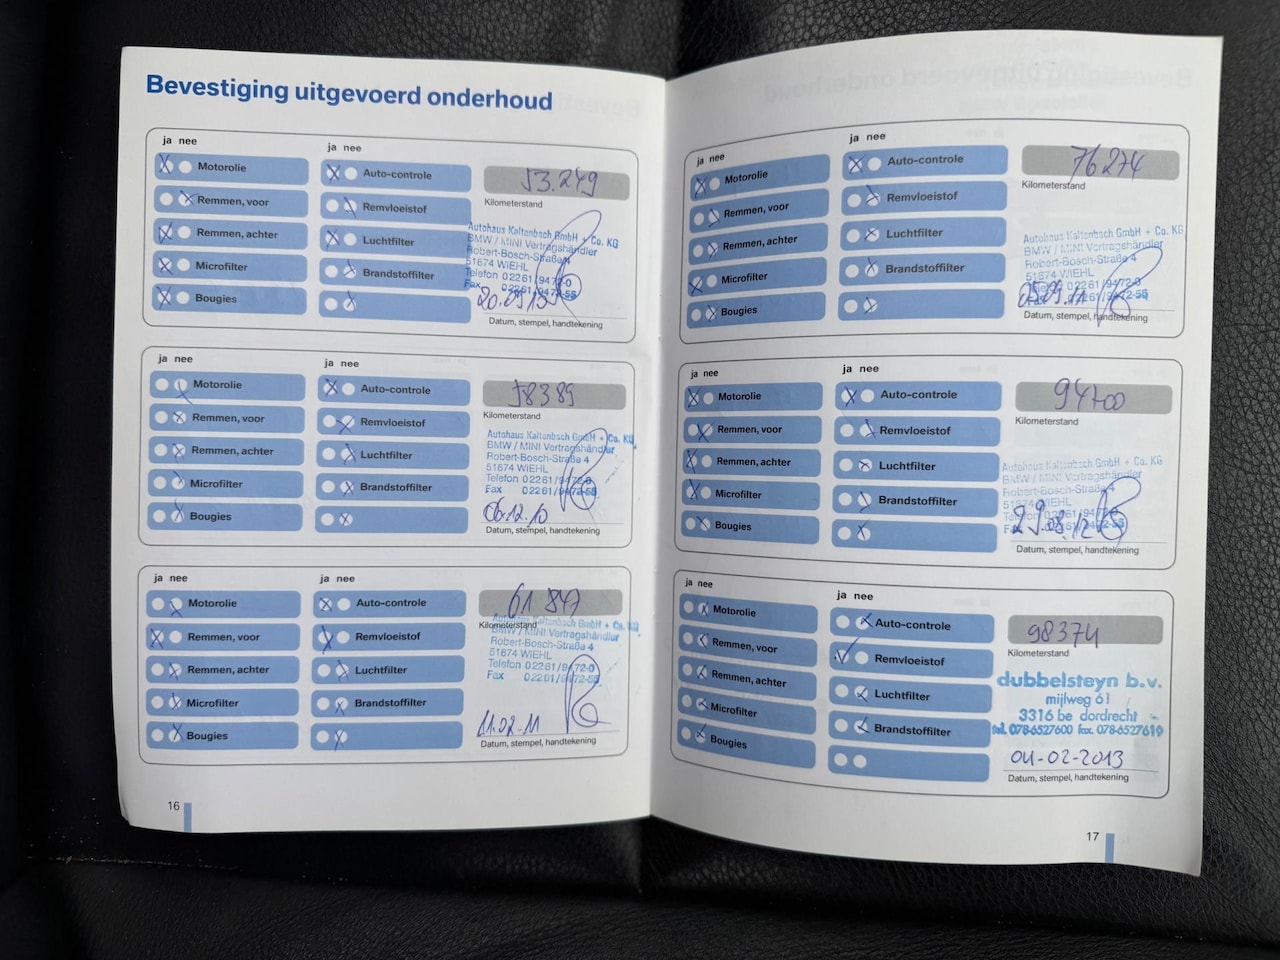 Bevestiging uitgevoerd onderhoud
ja nee
ja nee
Motorolie
Auto-controle
53.249
Remmen, voor
Remvloeistof
Kilometerstand
Remmen, achter
Luchtfilter
Autohaus Kaltenbach GmbH + Co. KG
BMW / MINI Vertragshändler
Robert-Bosch-Straße 4
51674 WIEHL
Telefon 02261/9472-0
Fax 02261/9472-55
Microfilter
Brandstoffilter
Bougies
Datum, stempel, handtekening
ja nee
ja nee
Motorolie
Auto-controle
58389
Remmen, voor
Remvloeistof
Kilometerstand
Remmen, achter
Luchtfilter
Autohaus Kaltenbach GmbH + Co. KG
BMW / MINI Vertragshändler
Robert-Bosch-Straße 4
51674 WIEHL
Telefon 02261/9472-0
Fax 02261/9472-55
Microfilter
Brandstoffilter
Bougies
06.12.10
Datum, stempel, handtekening
ja nee
ja nee
Motorolie
Auto-controle
61 847
Remmen, voor
Remvloeistof
Kilometerstand
Remmen, achter
Luchtfilter
Autohaus Kaltenbach GmbH + Co. KG
BMW / MINI Vertragshändler
Robert-Bosch-Straße 4
51674 WIEHL
Telefon 02261/9472-0
Fax 02261/9472-55
Microfilter
Brandstoffilter
Bougies
11.02.11
Datum, stempel, handtekening
16
ja nee
ja nee
Motorolie
Auto-controle
76274
Remmen, voor
Remvloeistof
Kilometerstand
Remmen, achter
Luchtfilter
Autohaus Kaltenbach GmbH + Co. KG
BMW / MINI Vertragshändler
Robert-Bosch-Straße 4
51674 WIEHL
Telefon 02261/9472-0
Fax 02261/9472-55
Microfilter
Brandstoffilter
Bougies
Datum, stempel, handtekening
ja nee
ja nee
Motorolie
Auto-controle
94700
Remmen, voor
Remvloeistof
Kilometerstand
Remmen, achter
Luchtfilter
Autohaus Kaltenbach GmbH + Co. KG
BMW / MINI Vertragshändler
Robert-Bosch-Straße 4
51674 WIEHL
Telefon 02261/9472-0
Fax 02261/9472-55
Microfilter
Brandstoffilter
Bougies
29.08.12
Datum, stempel, handtekening
ja nee
ja nee
Motorolie
Auto-controle
98374
Remmen, voor
Remvloeistof
Kilometerstand
Remmen, achter
Luchtfilter
dubbelsteyn b.v.
mijlweg 61
3316 be dordrecht
tel. 078-6527600 fax. 078-6527619
Microfilter
Brandstoffilter
Bougies
04-02-2013
Datum, stempel, handtekening
17